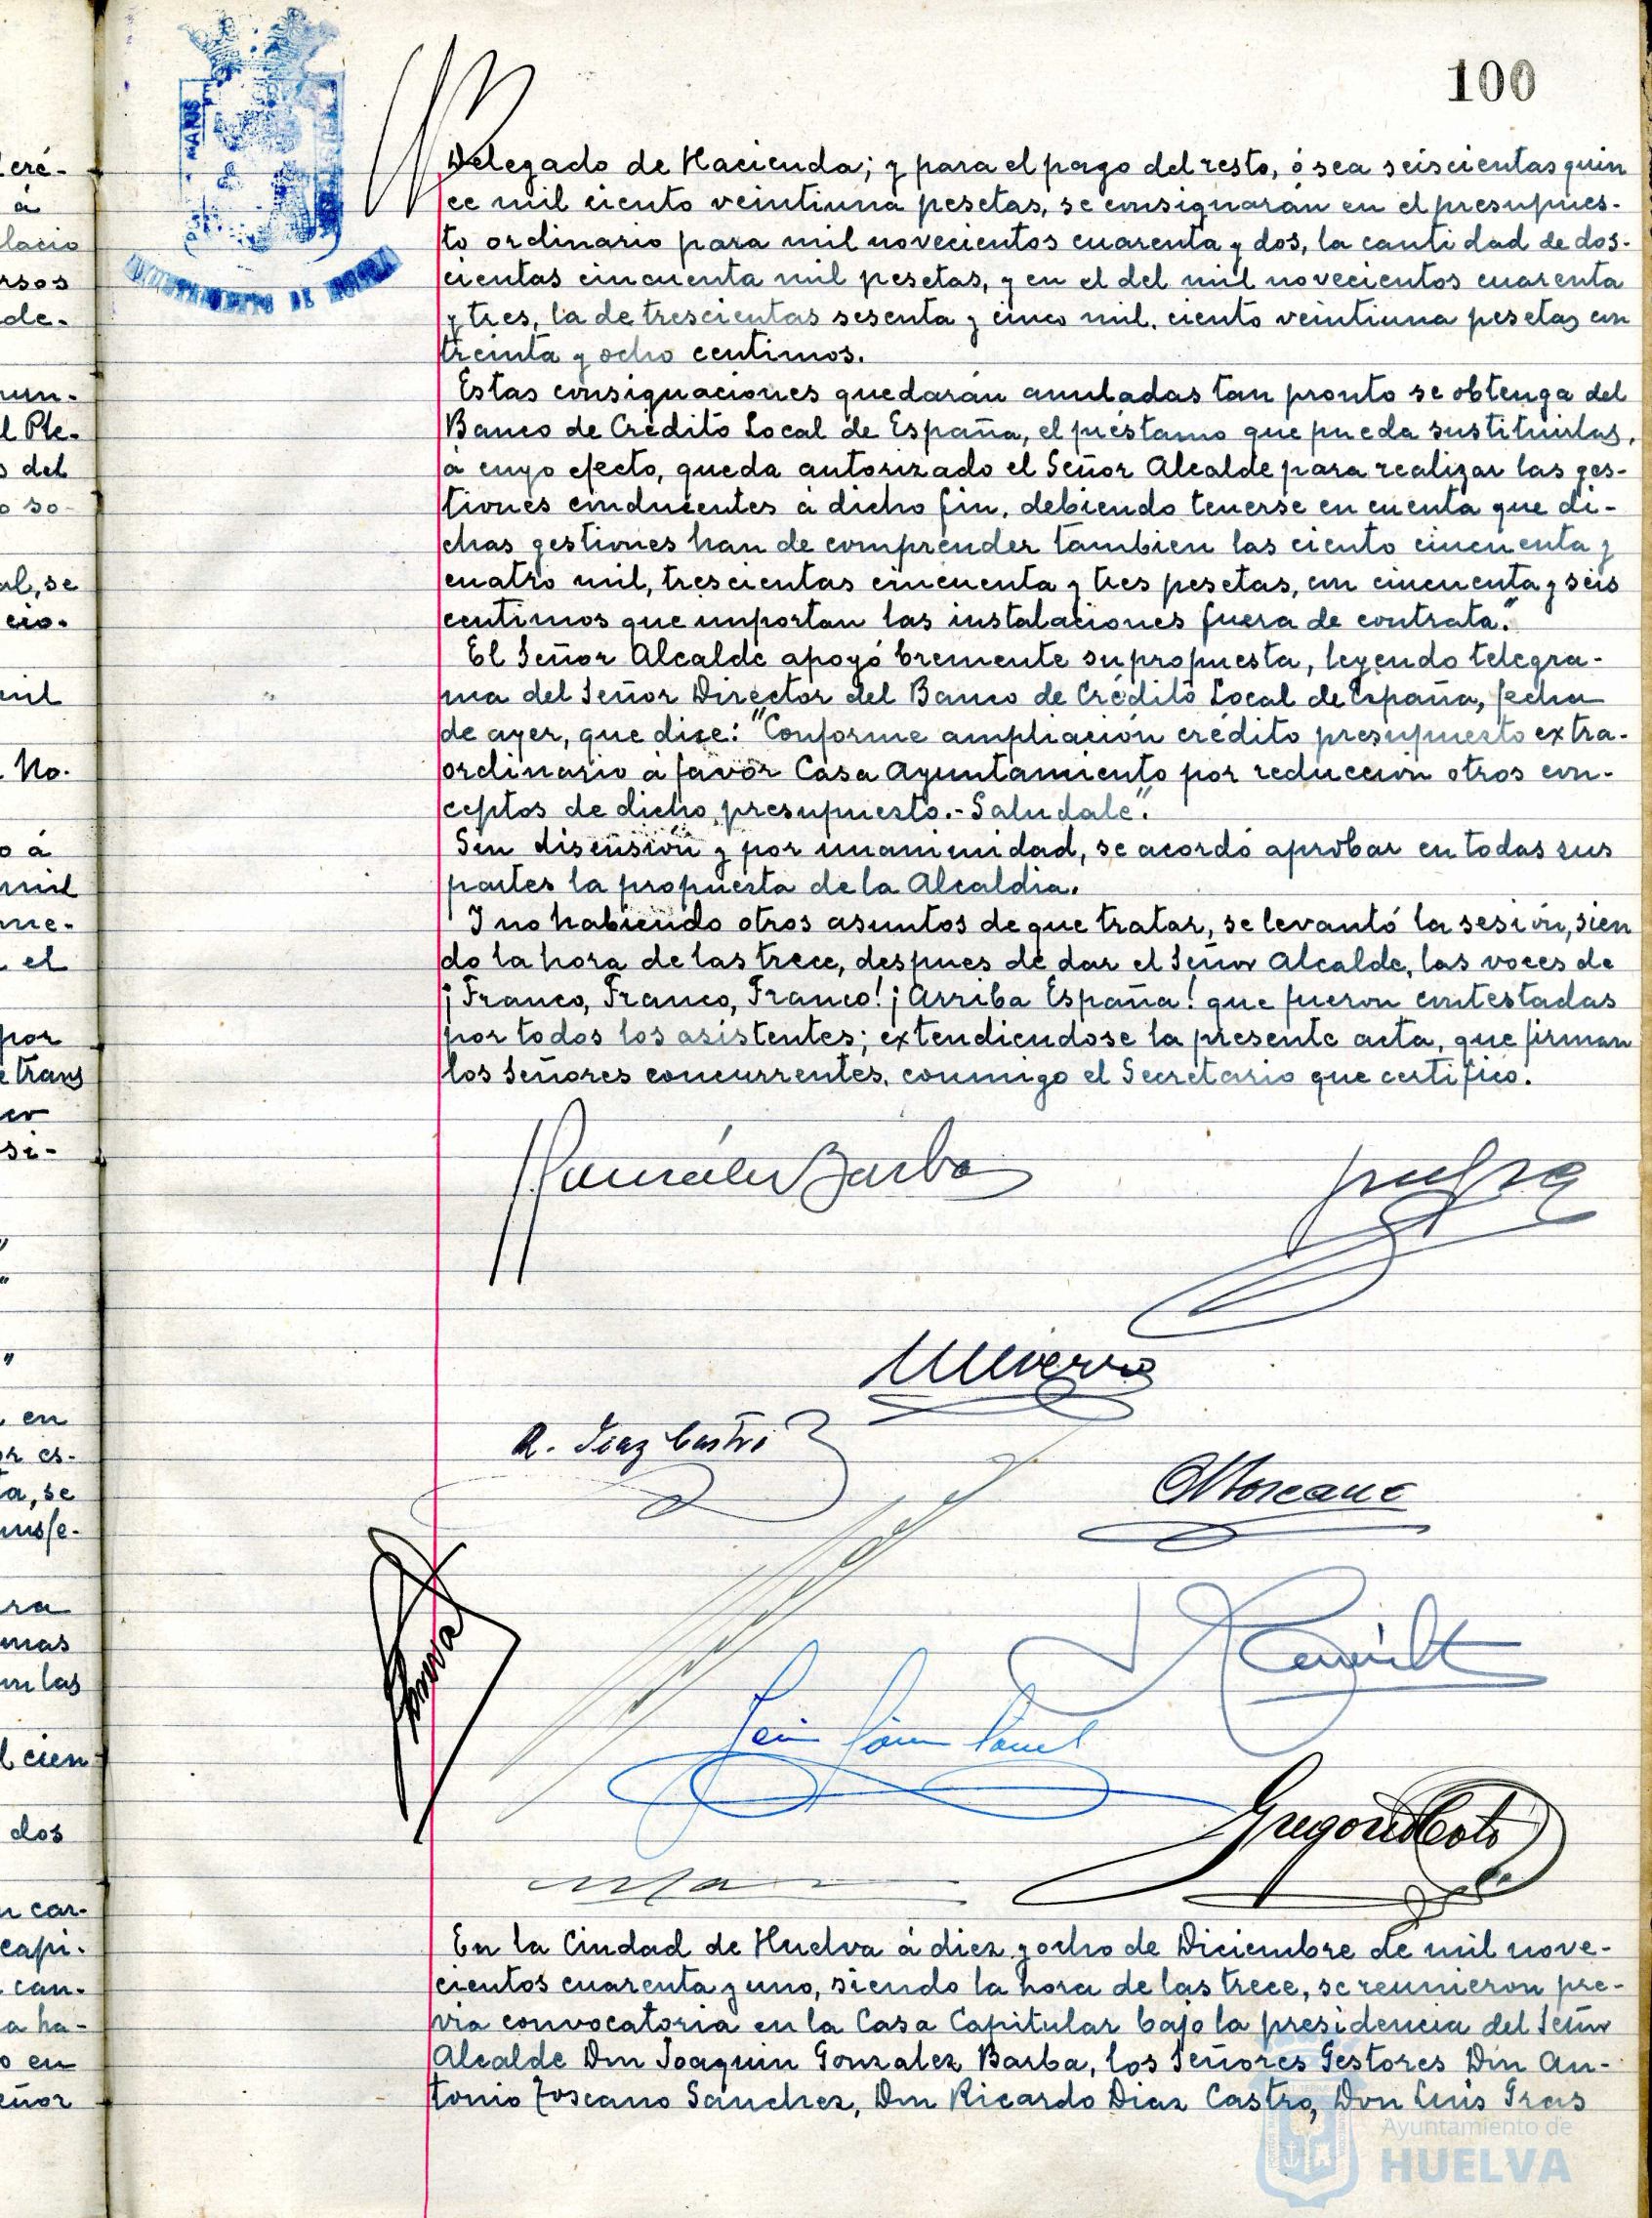 100
Delegado de Hacienda; y para el pago del resto, ó sea seiscientas quin
ce mil ciento veintiuna pesetas, se consignarán en el presupues-
to ordinario para mil novecientos cuarenta y dos, la cantidad de dos-
cientas cincuenta mil pesetas, y en el del mil novecientos cuarenta
y tres, la de trescientas sesenta y cinco mil, ciento veintiuna pesetas con
treinta y ocho centimos.
Estas consignaciones quedarán anuladas tan pronto se obtenga del
Banco de Crédito Local de España, el préstamo que pueda sustituirlas,
á cuyo efecto, queda autorizado el Señor Alcalde para realizar las ges-
tiones conducentes á dicho fin, debiendo tenerse en cuenta que di-
chas gestiones han de comprender tambien las ciento cincuenta y
cuatro mil, trescientas cincuenta y tres pesetas, con cincuenta y seis
centimos que importan las instalaciones fuera de contrata."
El Señor Alcalde apoyó bremente su propuesta, leyendo telegra-
ma del Señor Director del Banco de Crédito Local de España, fecha
de ayer, que dice: "Conforme ampliación crédito presupuesto extra-
ordinario á favor Casa Ayuntamiento por reducción otros con-
ceptos de dicho presupuesto.- Saludale".
Sin discusión y por unanimidad, se acordó aprobar en todas sus
partes la propuesta de la Alcaldia.
Y no habiendo otros asuntos de que tratar, se levantó la sesión, sien
do la hora de las trece, despues de dar el Señor Alcalde, las voces de
¡Franco, Franco, Franco! ¡Arriba España! que fueron contestadas
por todos los asistentes; extendiendose la presente acta, que firman
los Señores concurrentes, conmigo el Secretario que certifico.
González Barba
R. Diaz Castro
A Toscano
Gregorio Coto
En la Ciudad de Huelva á diez y ocho de Diciembre de mil nove-
cientos cuarenta y uno, siendo la hora de las trece, se reunieron pre-
via convocatoria en la Casa Capitular bajo la presidencia del Señor
Alcalde Don Joaquin Gonzalez Barba, los Señores Gestores Don An-
tonio Toscano Sanchez, Don Ricardo Diaz Castro, Don Luis Gras
AYUNTAMIENTO DE HUELVA
Ayuntamiento de
HUELVA